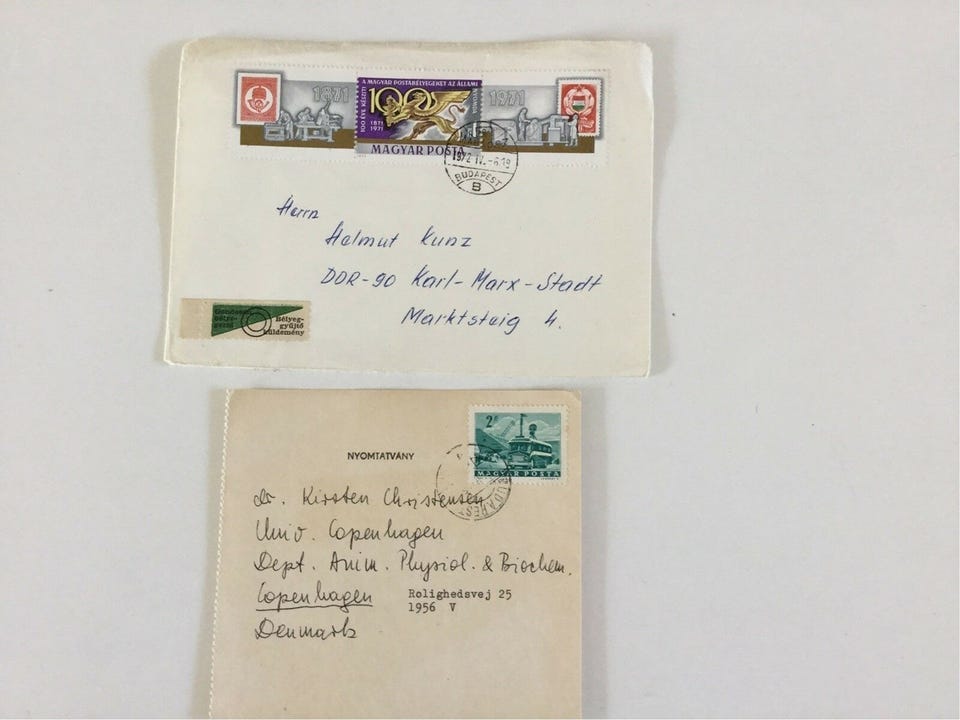 1871
A MAGYAR POSTABÉLYEGEKET AZ ÁLLAMI
100 ÉVE KÉSZÍTI
100
1871
1971
MAGYAR POSTA
1971
BUDAPEST
B
Herrn
Helmut Kunz
DDR-90 Karl-Marx-Stadt
Marktsteig 4.
Bélyeg-
gyűjtő
küldemény
2F
MAGYAR POSTA
BUDAPEST
NYOMTATVÁNY
dr. Kirsten Christensen
Univ. Copenhagen
Dept. Anim. Physiol. & Biochem.
Copenhagen Rolighedsvej 25
1956 V
Denmark